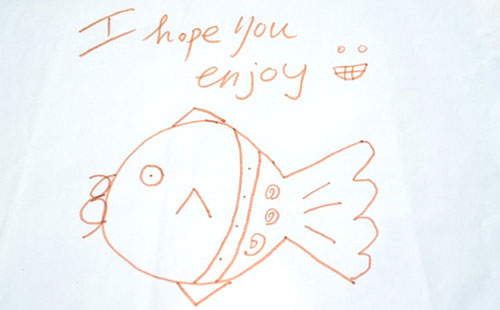 I hope you
enjoy